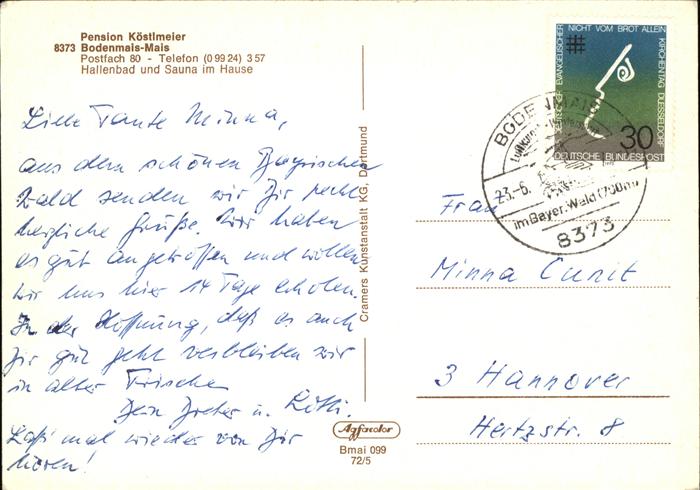 Pension Köstlmeier
8373 Bodenmais-Mais
Postfach 80 - Telefon (0 99 24) 3 57
Hallenbad und Sauna im Hause
Liebe Tante Minna,
aus dem schönen Bayrischen
Wald senden wir Dir recht
herzliche Grüße. Wir haben
es gut angetroffen und wollen
wir uns hier 14 Tage erholen.
In der Hoffnung, daß es auch
Dir gut geht verbleiben wir
in alter Frische
Dein Dieter u. Lotti.
Laß' mal wieder von Dir
hören!
Cramers Kunstanstalt KG, Dortmund
Agfacolor
Bmai 099
72/5
EVANGELISCHER
NICHT VOM BROT ALLEIN
KIRCHENTAG DUESSELDORF
30
DEUTSCHE BUNDESPOST
BODENMAIS
23.-6.
im Bayer. Wald (700m)
8373
Frau
Minna Cunit
3 Hannover
Hertzstr. 8